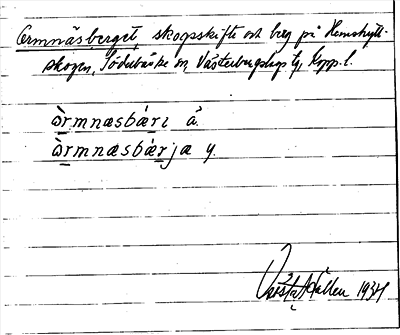 Ormnäsberget, skogsskifte och berg på Hemshytt-
skogen, Söderbärke sn, Västerbergslags tg, Kopp. l.
ὼrmnæsbæ̀ri å.
ὼrmnæsbæ̀rja y.
Gösta Källen 1934